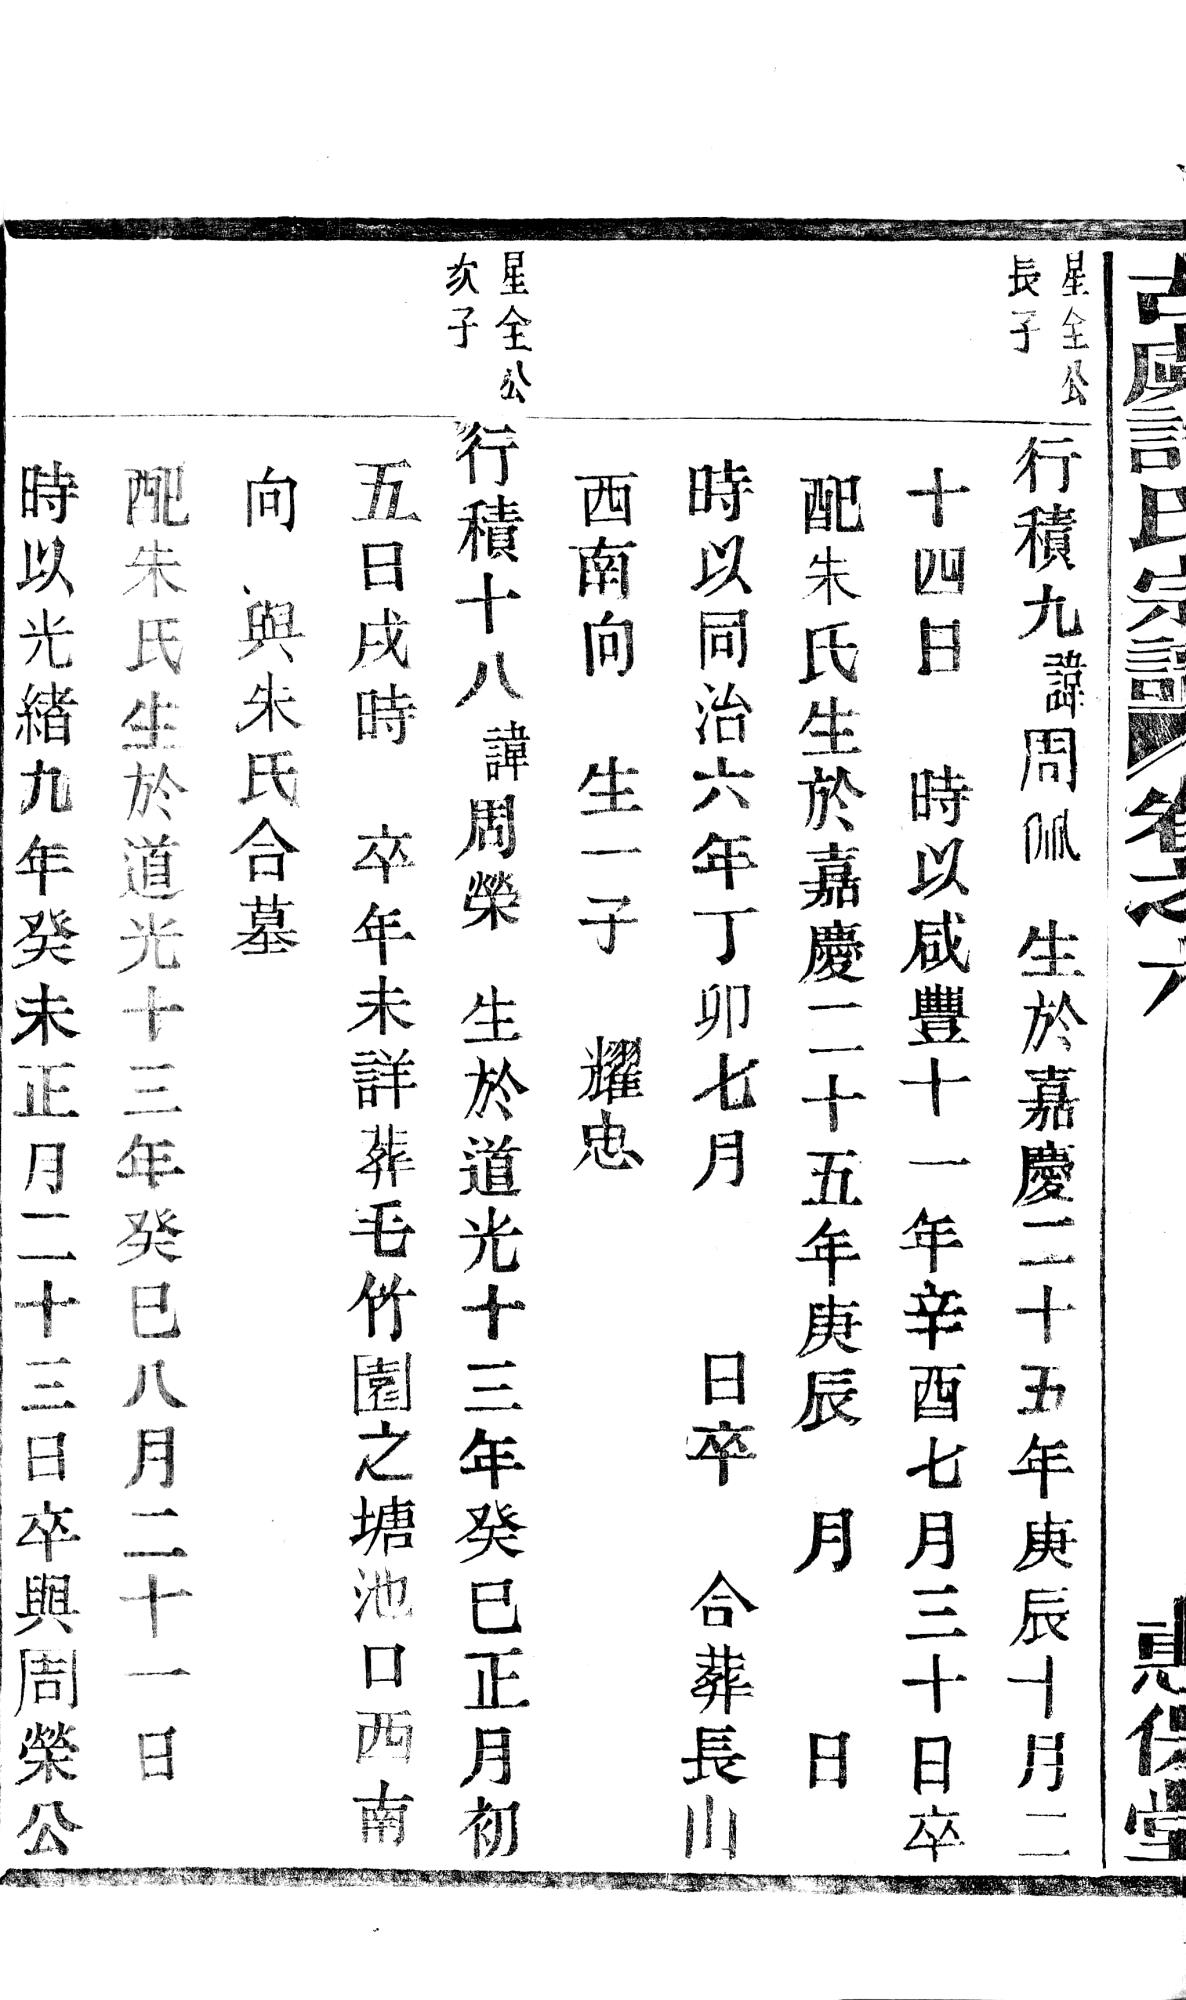 古虞許氏宗譜 卷之六 惠保堂
星全公
長子
行積九諱周佩 生於嘉慶二十五年庚辰十月二
十四日 時以咸豐十一年辛酉七月三十日卒
配朱氏生於嘉慶二十五年庚辰 月 日
時以同治六年丁卯七月 日卒 合葬長山
西南向 生一子 耀忠
星全公
次子
行積十八諱周榮 生於道光十三年癸巳正月初
五日戌時 卒年未詳葬毛竹園之塘池口西南
向 與朱氏合墓
配朱氏生於道光十三年癸巳八月二十一日
時以光緒九年癸未正月二十三日卒與周榮公